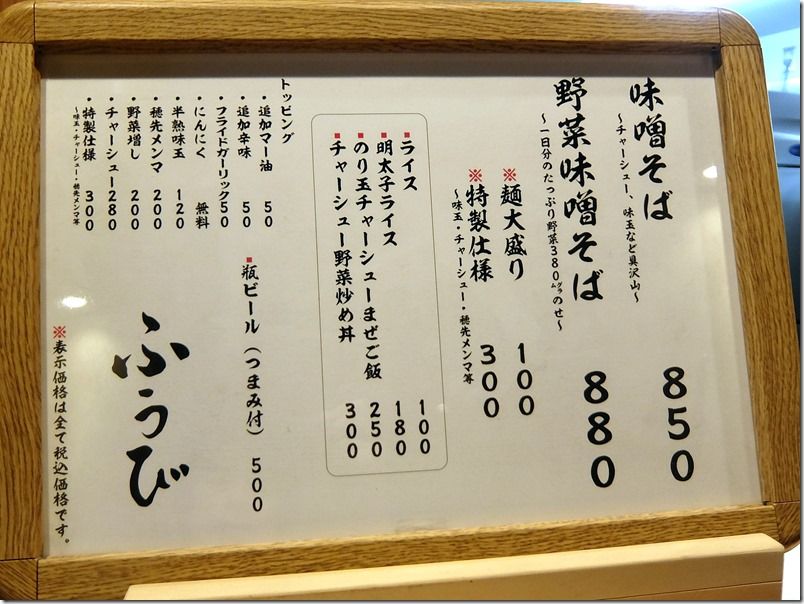 味噌そば 850
〜チャーシュー、味玉など具沢山〜
野菜味噌そば 880
〜一日分のたっぷり野菜380㌘のせ〜
※麺大盛り 100
※特製仕様 300
〜味玉・チャーシュー・穂先メンマ等
■ライス 100
■明太子ライス 180
■のり玉チャーシューまぜご飯 250
■チャーシュー野菜炒め丼 300
トッピング
・追加マー油 50
・追加辛味 50
・フライドガーリック 50
・にんにく 無料
・半熟味玉 120
・穂先メンマ 200
・野菜増し 200
・チャーシュー 280
・特製仕様 300
〜味玉・チャーシュー・穂先メンマ等
■瓶ビール(つまみ付) 500
ふうび
※表示価格は全て税込価格です。